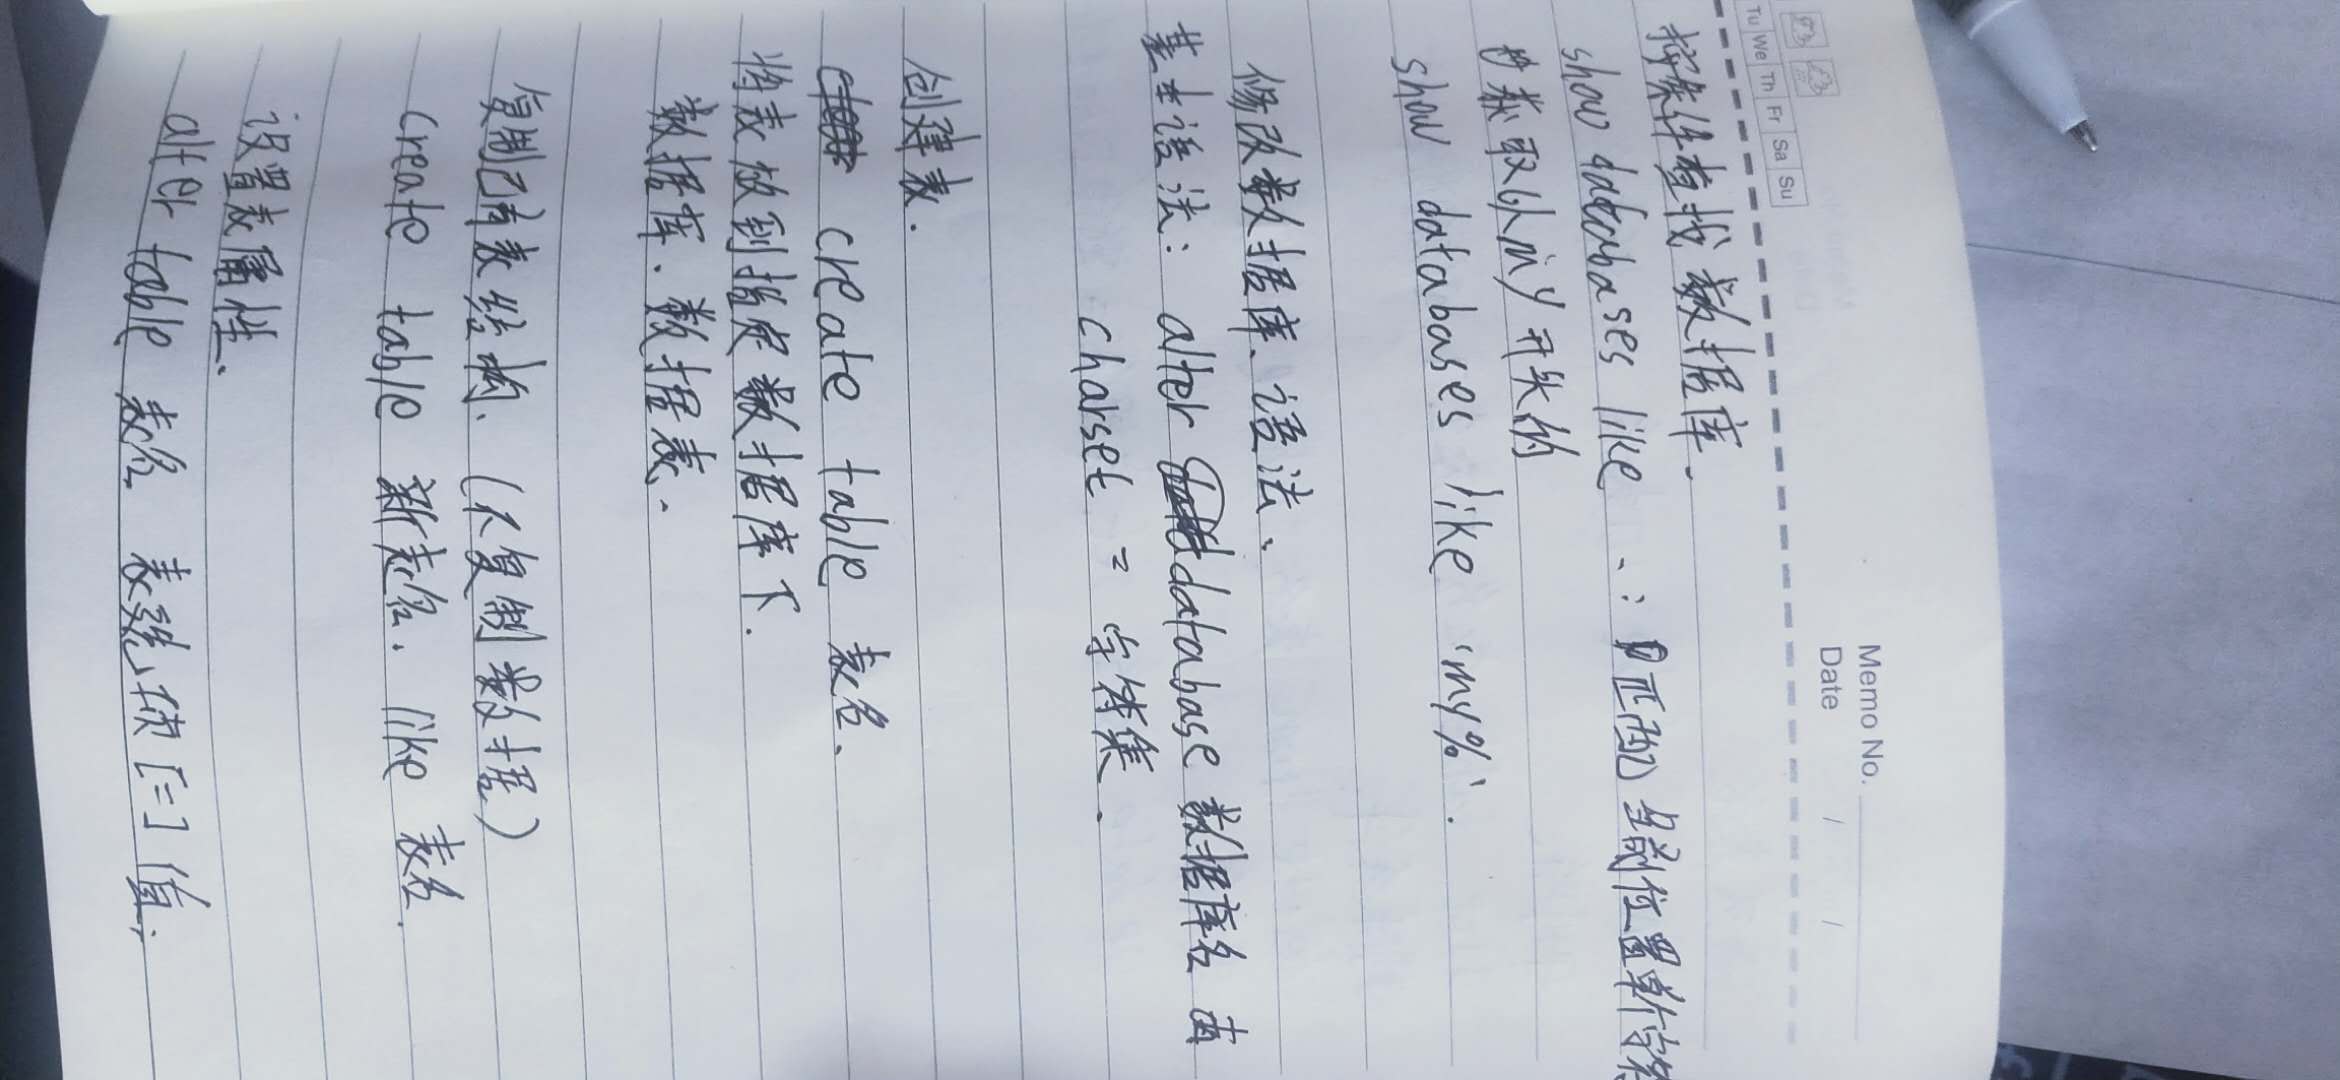 Memo No.
Tu We Th Fr Sa Su
Date / /
按条件查找数据库、
show databases like 、: 匹配当前位置单个字符
获取以my开头的
show databases like 'my%'.
修改数据库、语法、
基本语法: alter database 数据库名
charset = 字符集.
创建表.
create table 表名、
将表放到指定数据库下.
数据库.数据表、
复制已有表结构、(不复制数据)
create table 新表名. like 表名.
设置表属性、
alter table 表名 表选项 [=] 值;